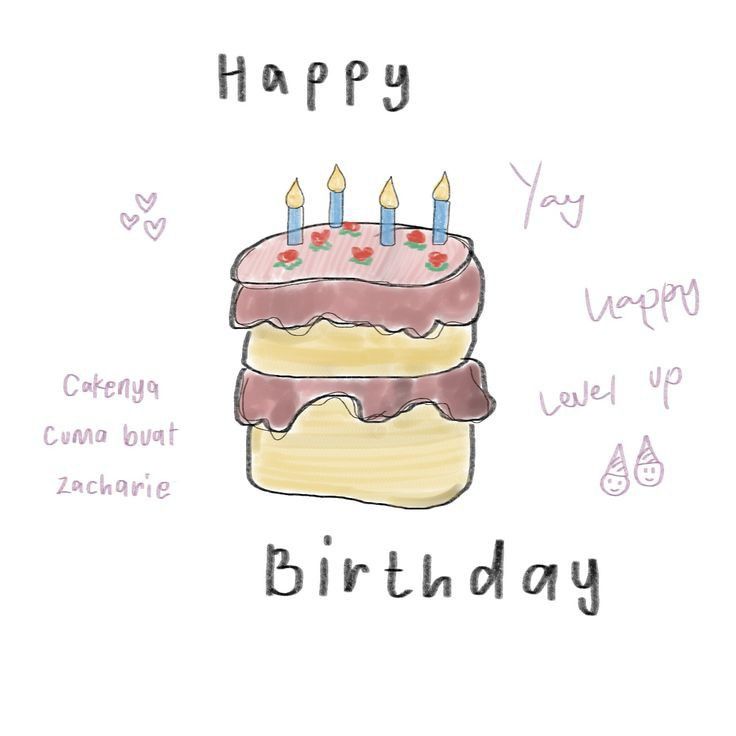 Happy
Yay
Happy
Level up
Cakenya
Cuma buat
Zacharie
Birthday